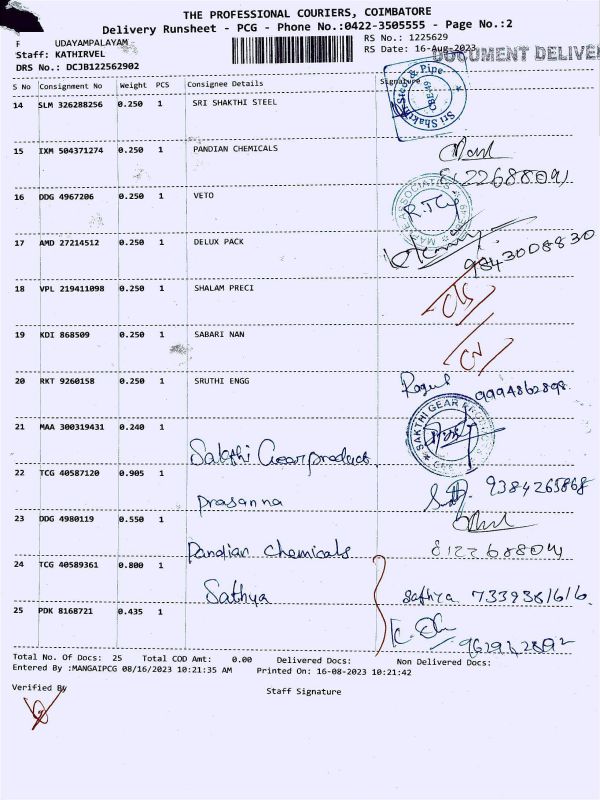 THE PROFESSIONAL COURIERS, COIMBATORE
Delivery Runsheet - PCG - Phone No.:0422-3505555 - Page No.:2
UDAYAMPALAYAM RS No.: 1225629
Staff: KATHIRVEL RS Date: 16-Aug-2023 DOCUMENT DELIVER
DRS No.: DCJB122562902
S No Consignment No Weight PCS Consignee Details Signature
14 SLM 326288256 0.250 1 SRI SHAKTHI STEEL
15 IXM 504371274 0.250 1 PANDIAN CHEMICALS
8122688041
16 DDG 4967206 0.250 1 VETO
17 AMD 27214512 0.250 1 DELUX PACK
9843008830
18 VPL 219411098 0.250 1 SHALAM PRECI
19 KDI 868509 0.250 1 SABARI NAN
20 RKT 9260158 0.250 1 SRUTHI ENGG 9994862898
21 MAA 300319431 0.240 1 SAKTHI GEAR
Sakthi Gear product
22 TCG 40587120 0.905 1 9384265868
Prasanna
23 DDG 4980119 0.550 1
Pandian Chemicals 8122688041
24 TCG 40589361 0.800 1
Sathya sathya 7339381616
25 PDK 8168721 0.435 1
Total No. Of Docs: 25 Total COD Amt: 0.00 Delivered Docs: Non Delivered Docs:
Entered By :MANGAIPCG 08/16/2023 10:21:35 AM Printed On: 16-08-2023 10:21:42
Verified By Staff Signature